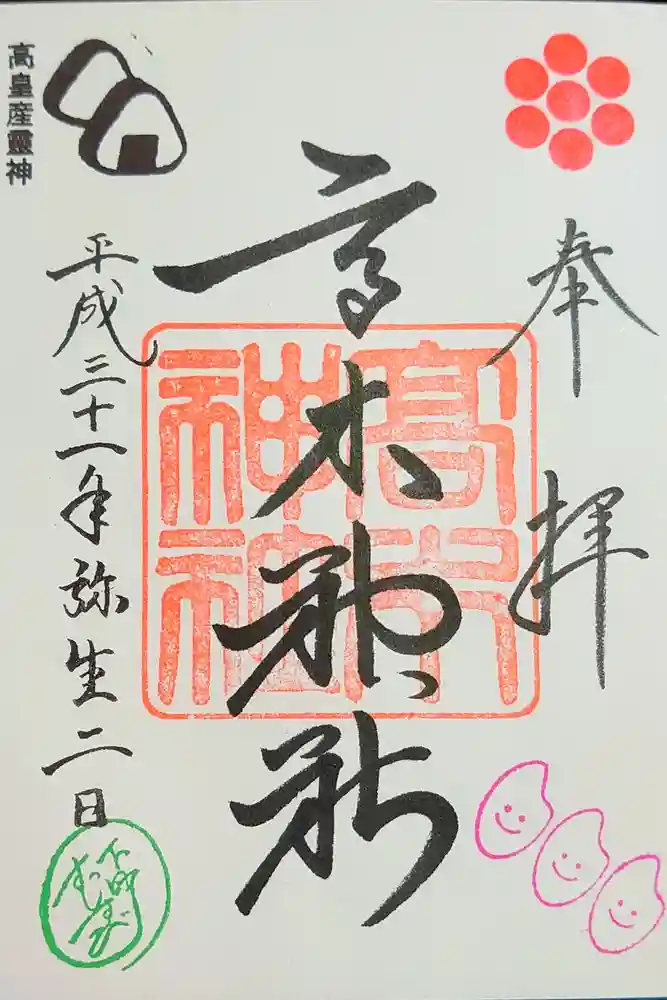 奉拝
高木神社
高木神社
平成三十一年弥生二日
高皇産靈神